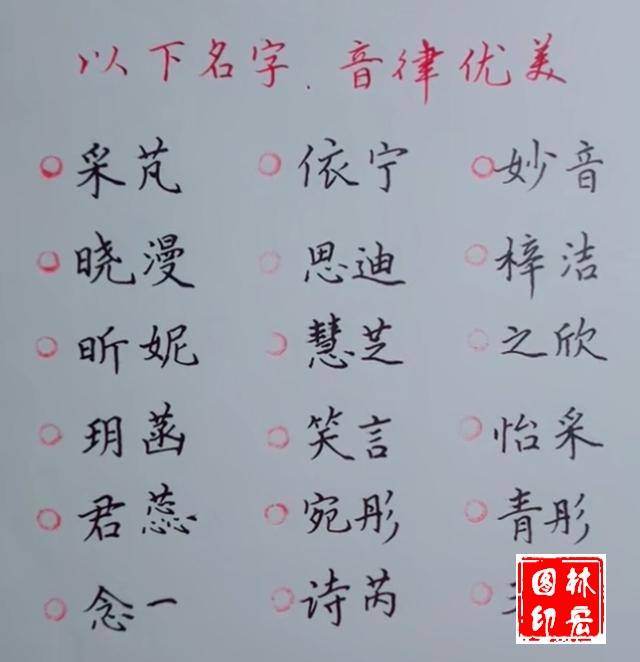 以下名字.音律优美
采芃 依宁 妙音
晓漫 思迪 梓洁
昕妮 慧芝 之欣
玥菡 笑言 怡采
君蕊 宛彤 青彤
念一 诗芮
图林
印宏